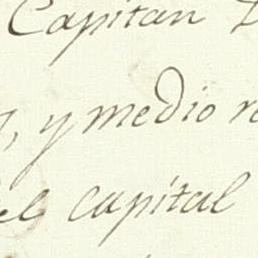 Capitan
, y medio
el capital